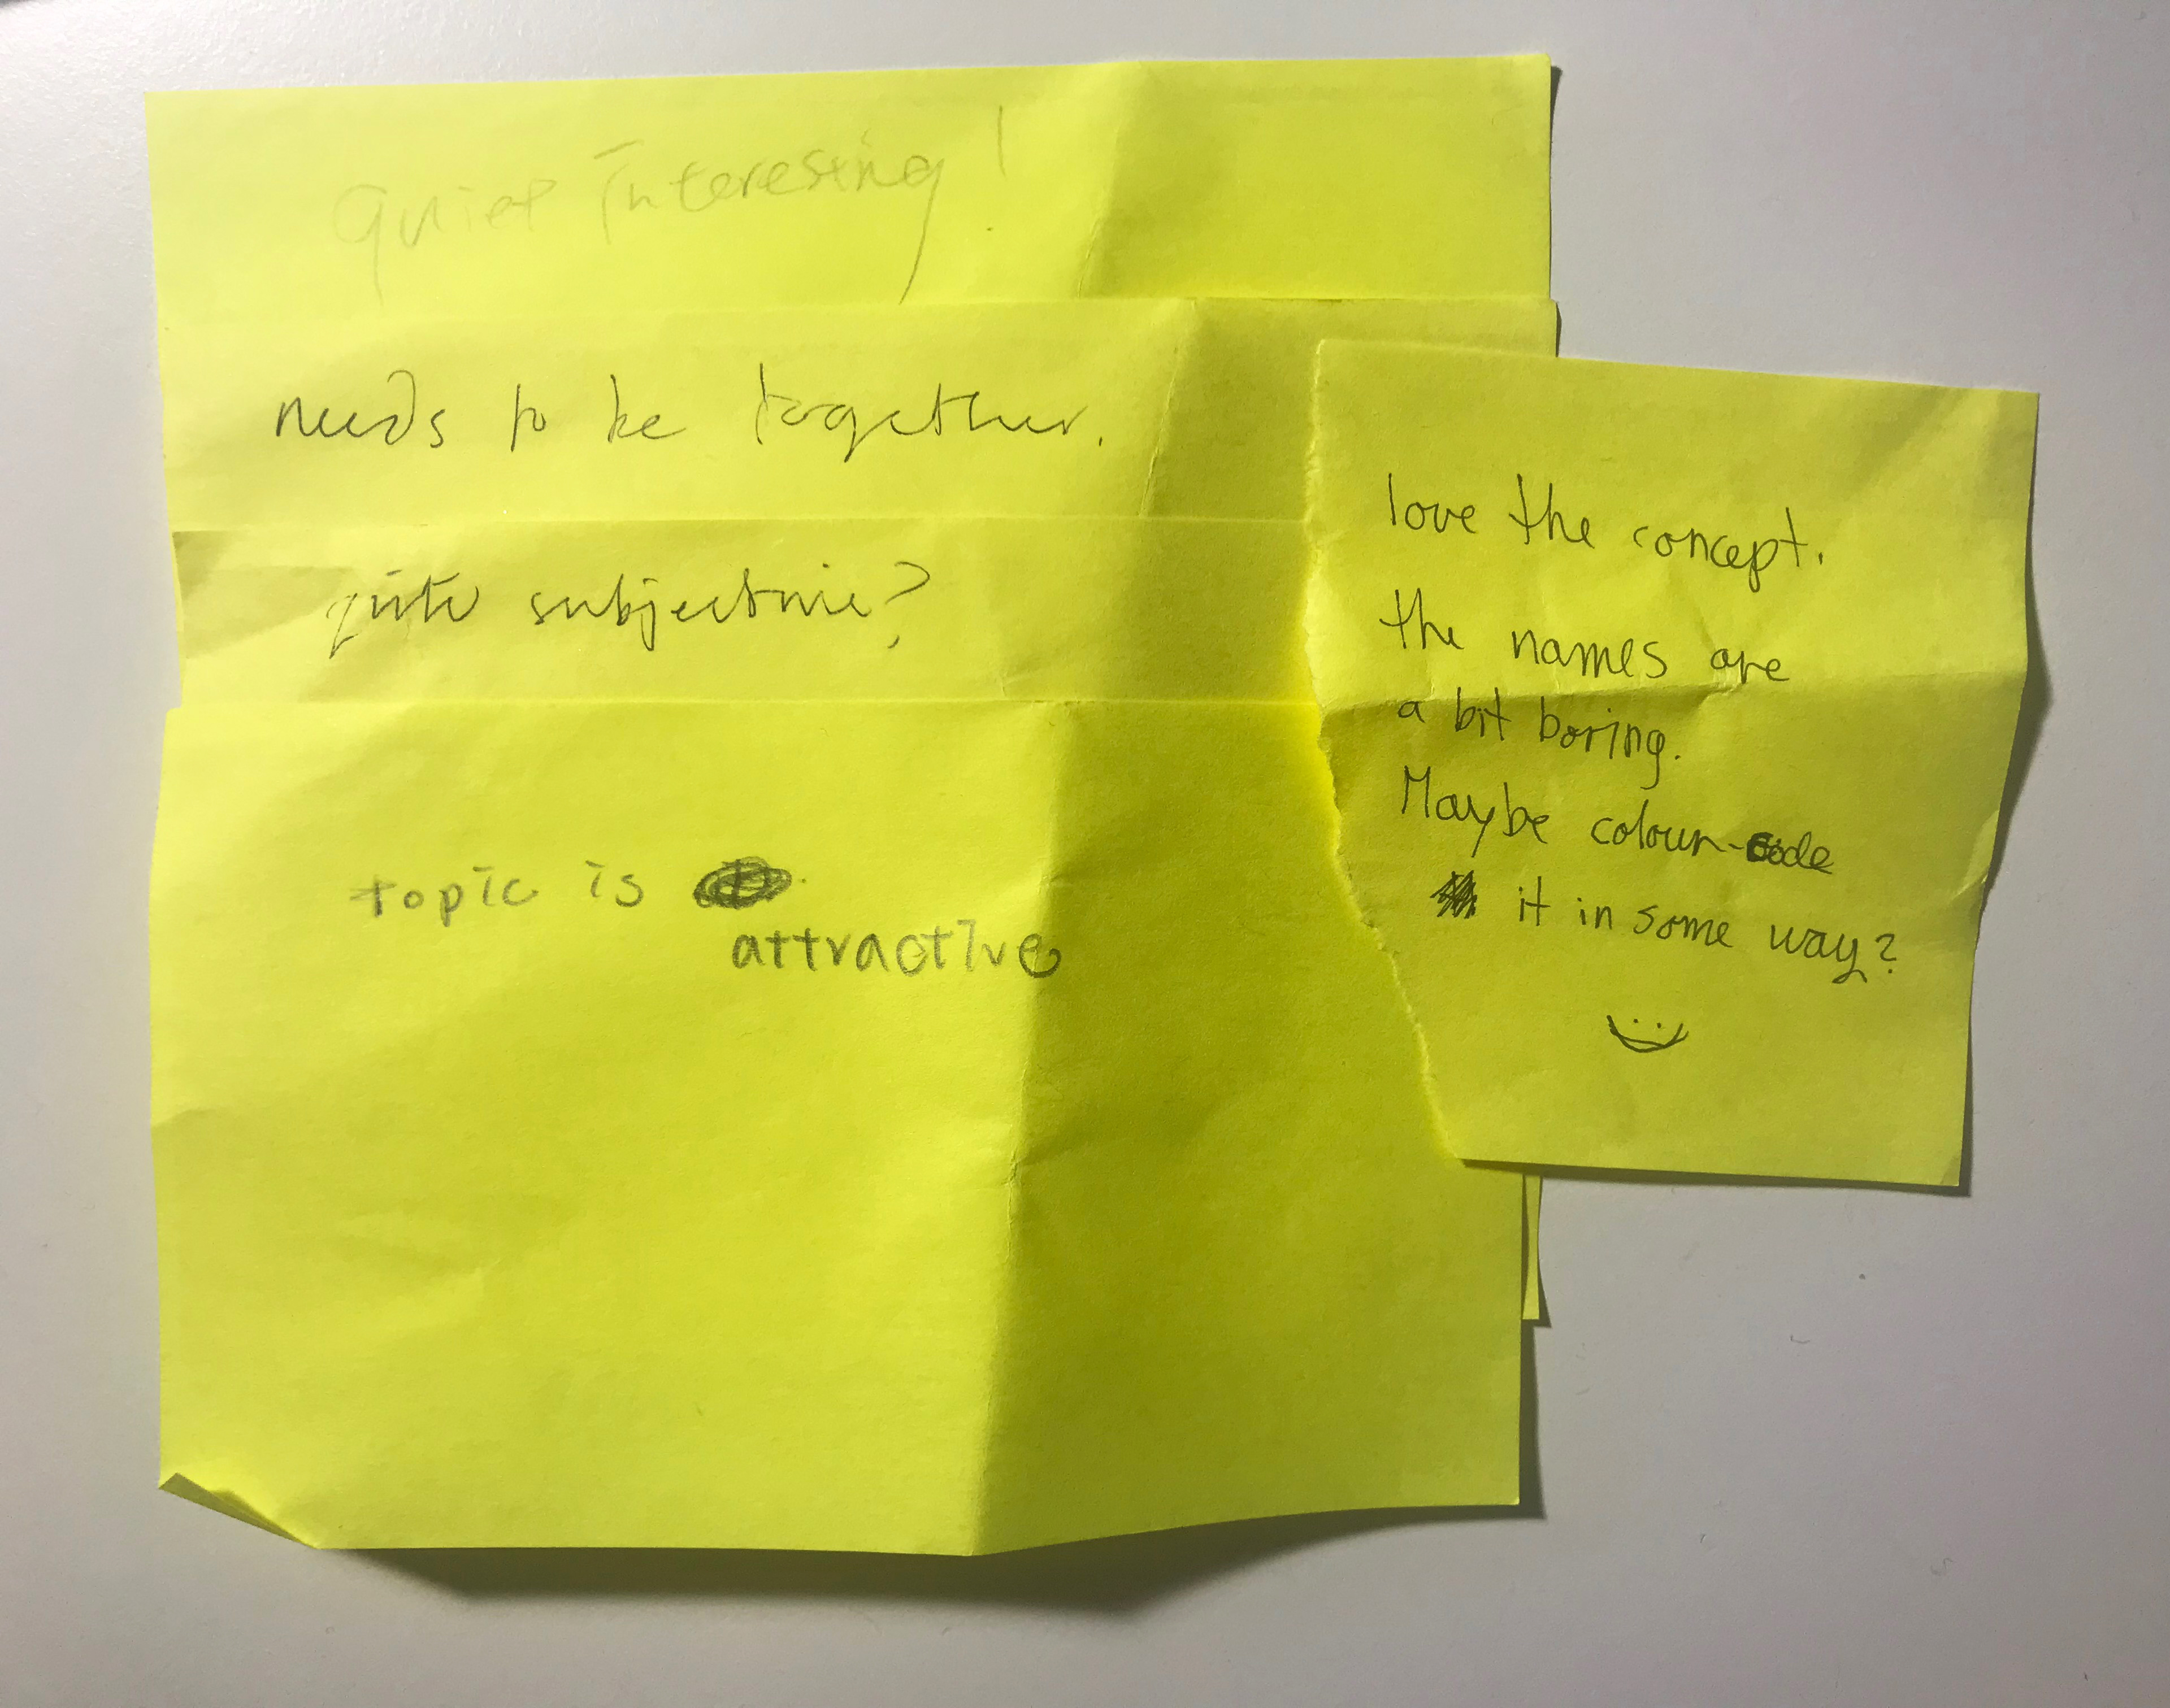 quiet interesting!
needs to be together.
quite subjective?
topic is
attractive
love the concept.
the names are
a bit boring.
Maybe colour-code
it in some way?